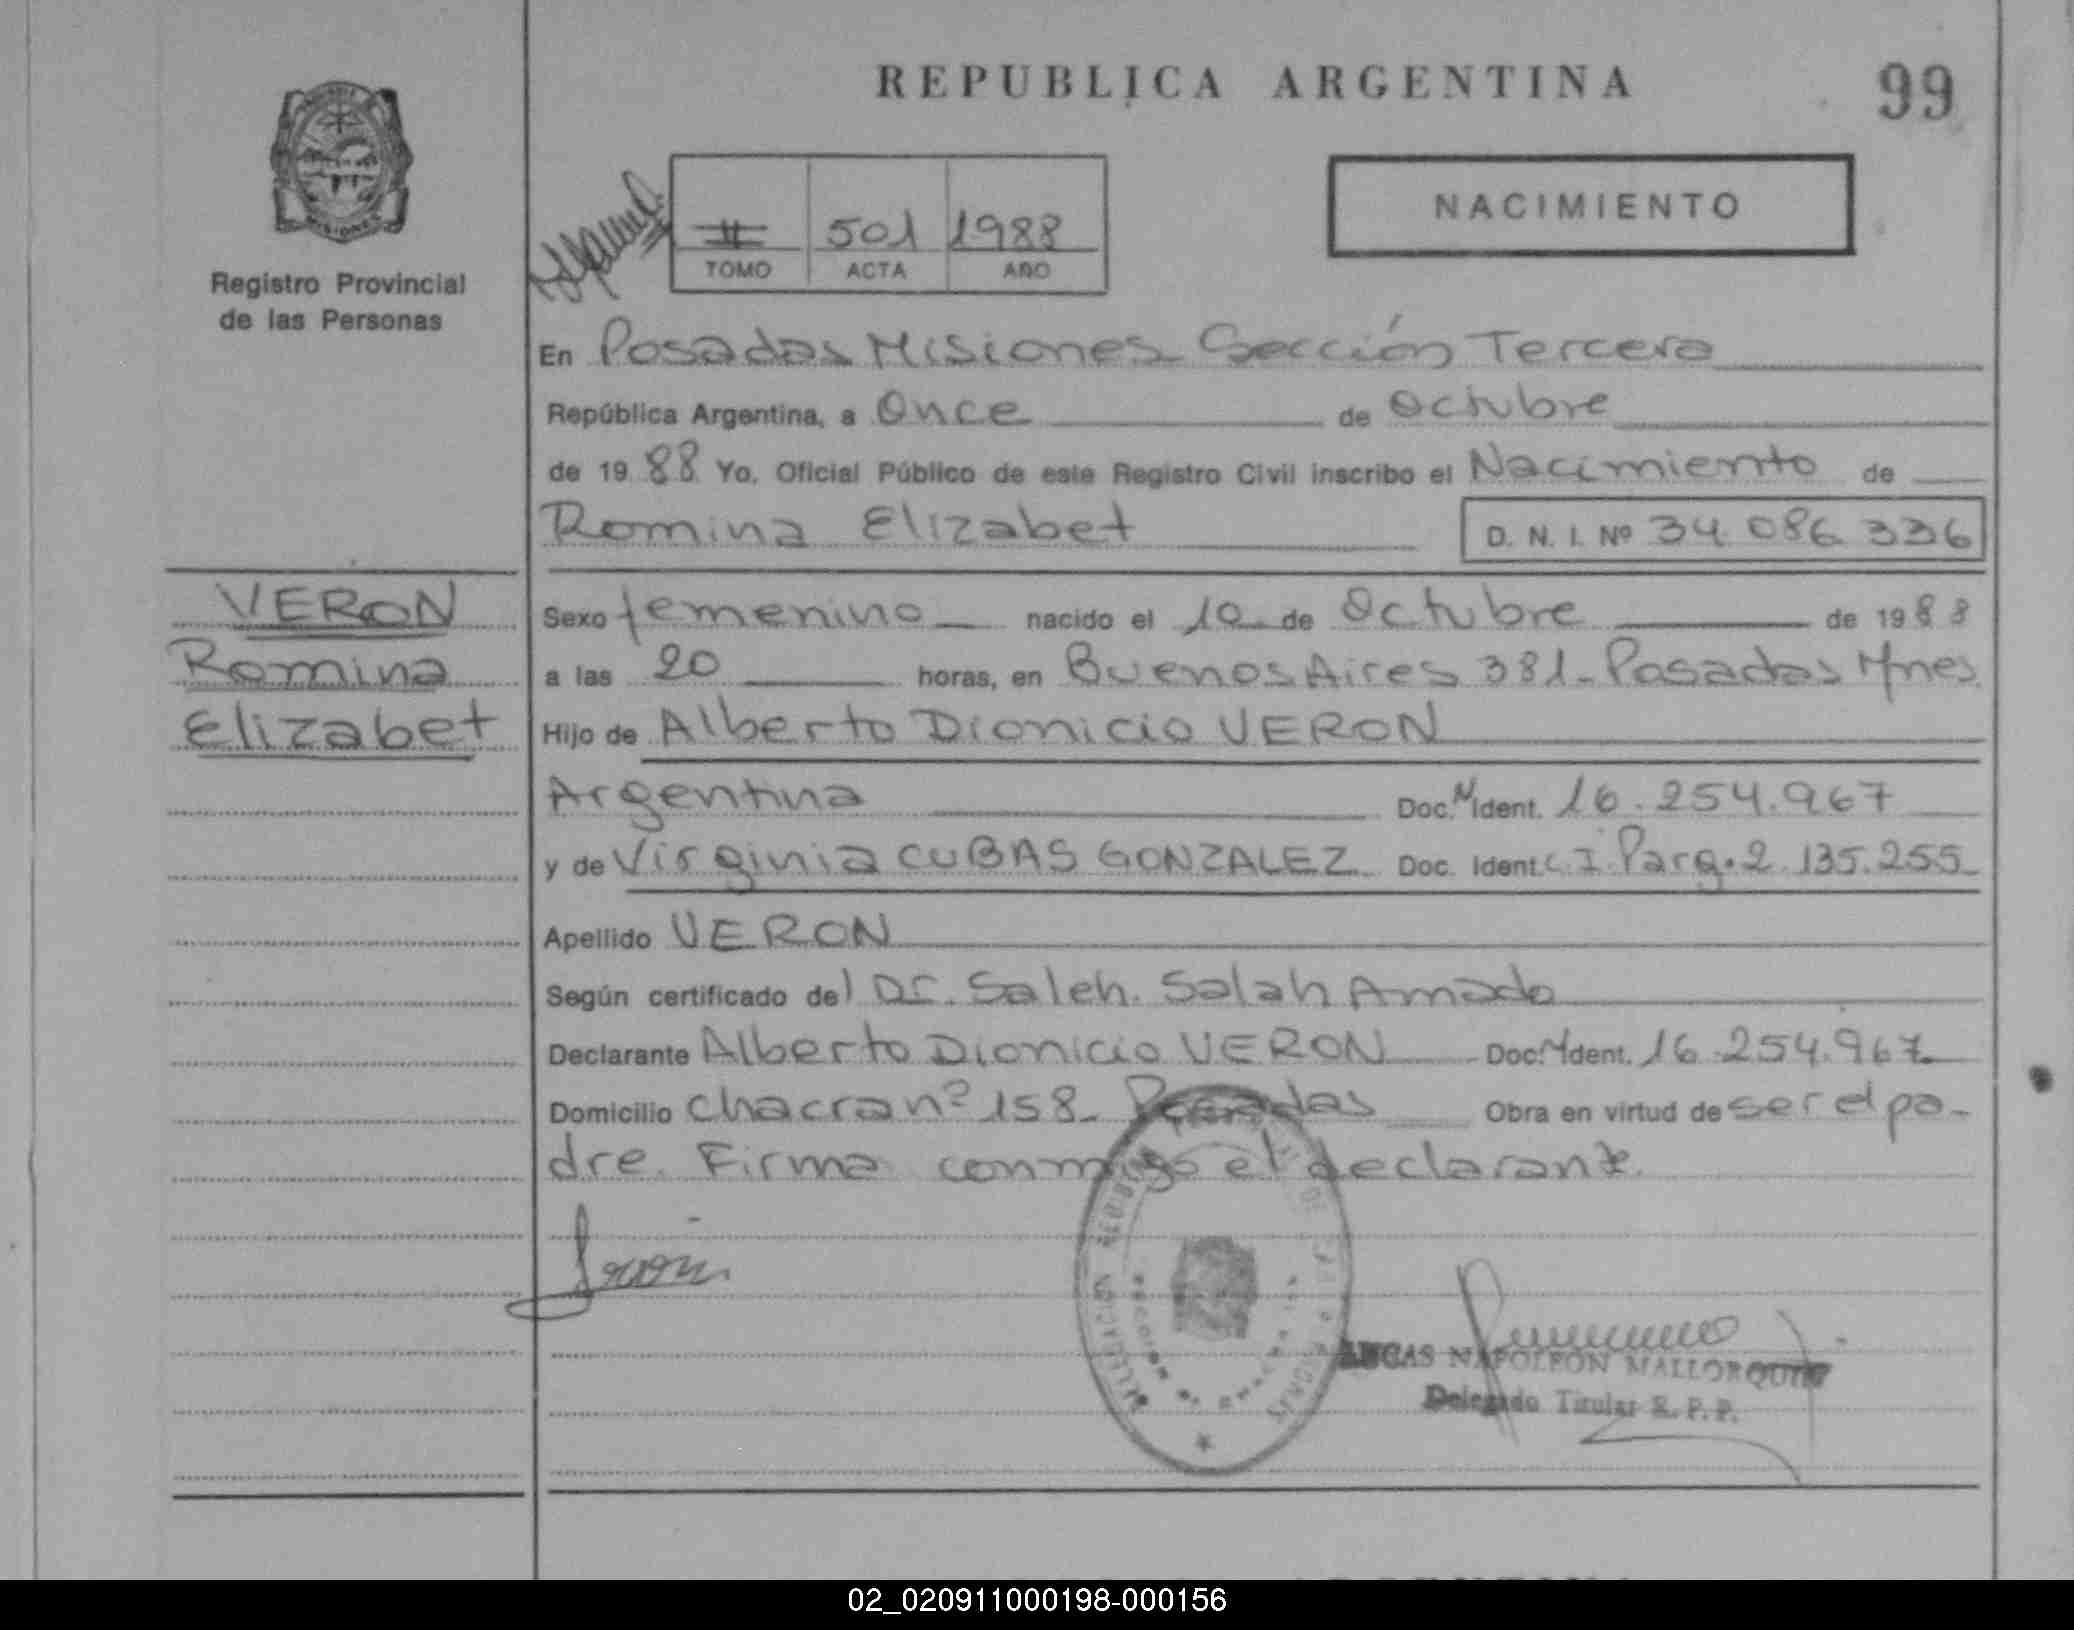 REPUBLICA ARGENTINA
99
Registro Provincial
de las Personas
II 501 1988
TOMO ACTA AÑO
NACIMIENTO
En Posadas Misiones Sección Tercera
República Argentina, a Once de Octubre
de 1988 Yo, Oficial Público de este Registro Civil inscribo el Nacimiento de
Romina Elizabet
D. N. I. Nº 34.086.336
VERON
Romina
Elizabet
Sexo femenino nacido el 10 de Octubre de 1988
a las 20 horas, en Buenos Aires 381-Posadas Mnes
Hijo de Alberto Dionicio VERON
Argentina Doc. N Ident. 16.254.967
y de Virginia CUBAS GONZALEZ Doc. Ident. C.I. Parg. 2.135.255
Apellido VERON
Según certificado del Dr. Saleh. Salah Amado
Declarante Alberto Dionicio VERON Doc. N Ident. 16.254.967
Domicilio chacra nº 158- Posadas Obra en virtud de ser el pa-
dre. Firma conmigo el declarante.
LUCAS NAPOLEON MALLORQUIN
Delegado Titular R. P. P.
02_020911000198-000156